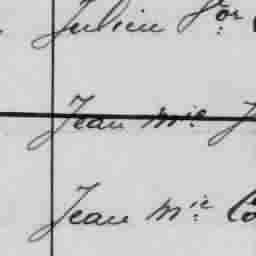 Julien Fçois
Jean Mie J
Jean Mie Co